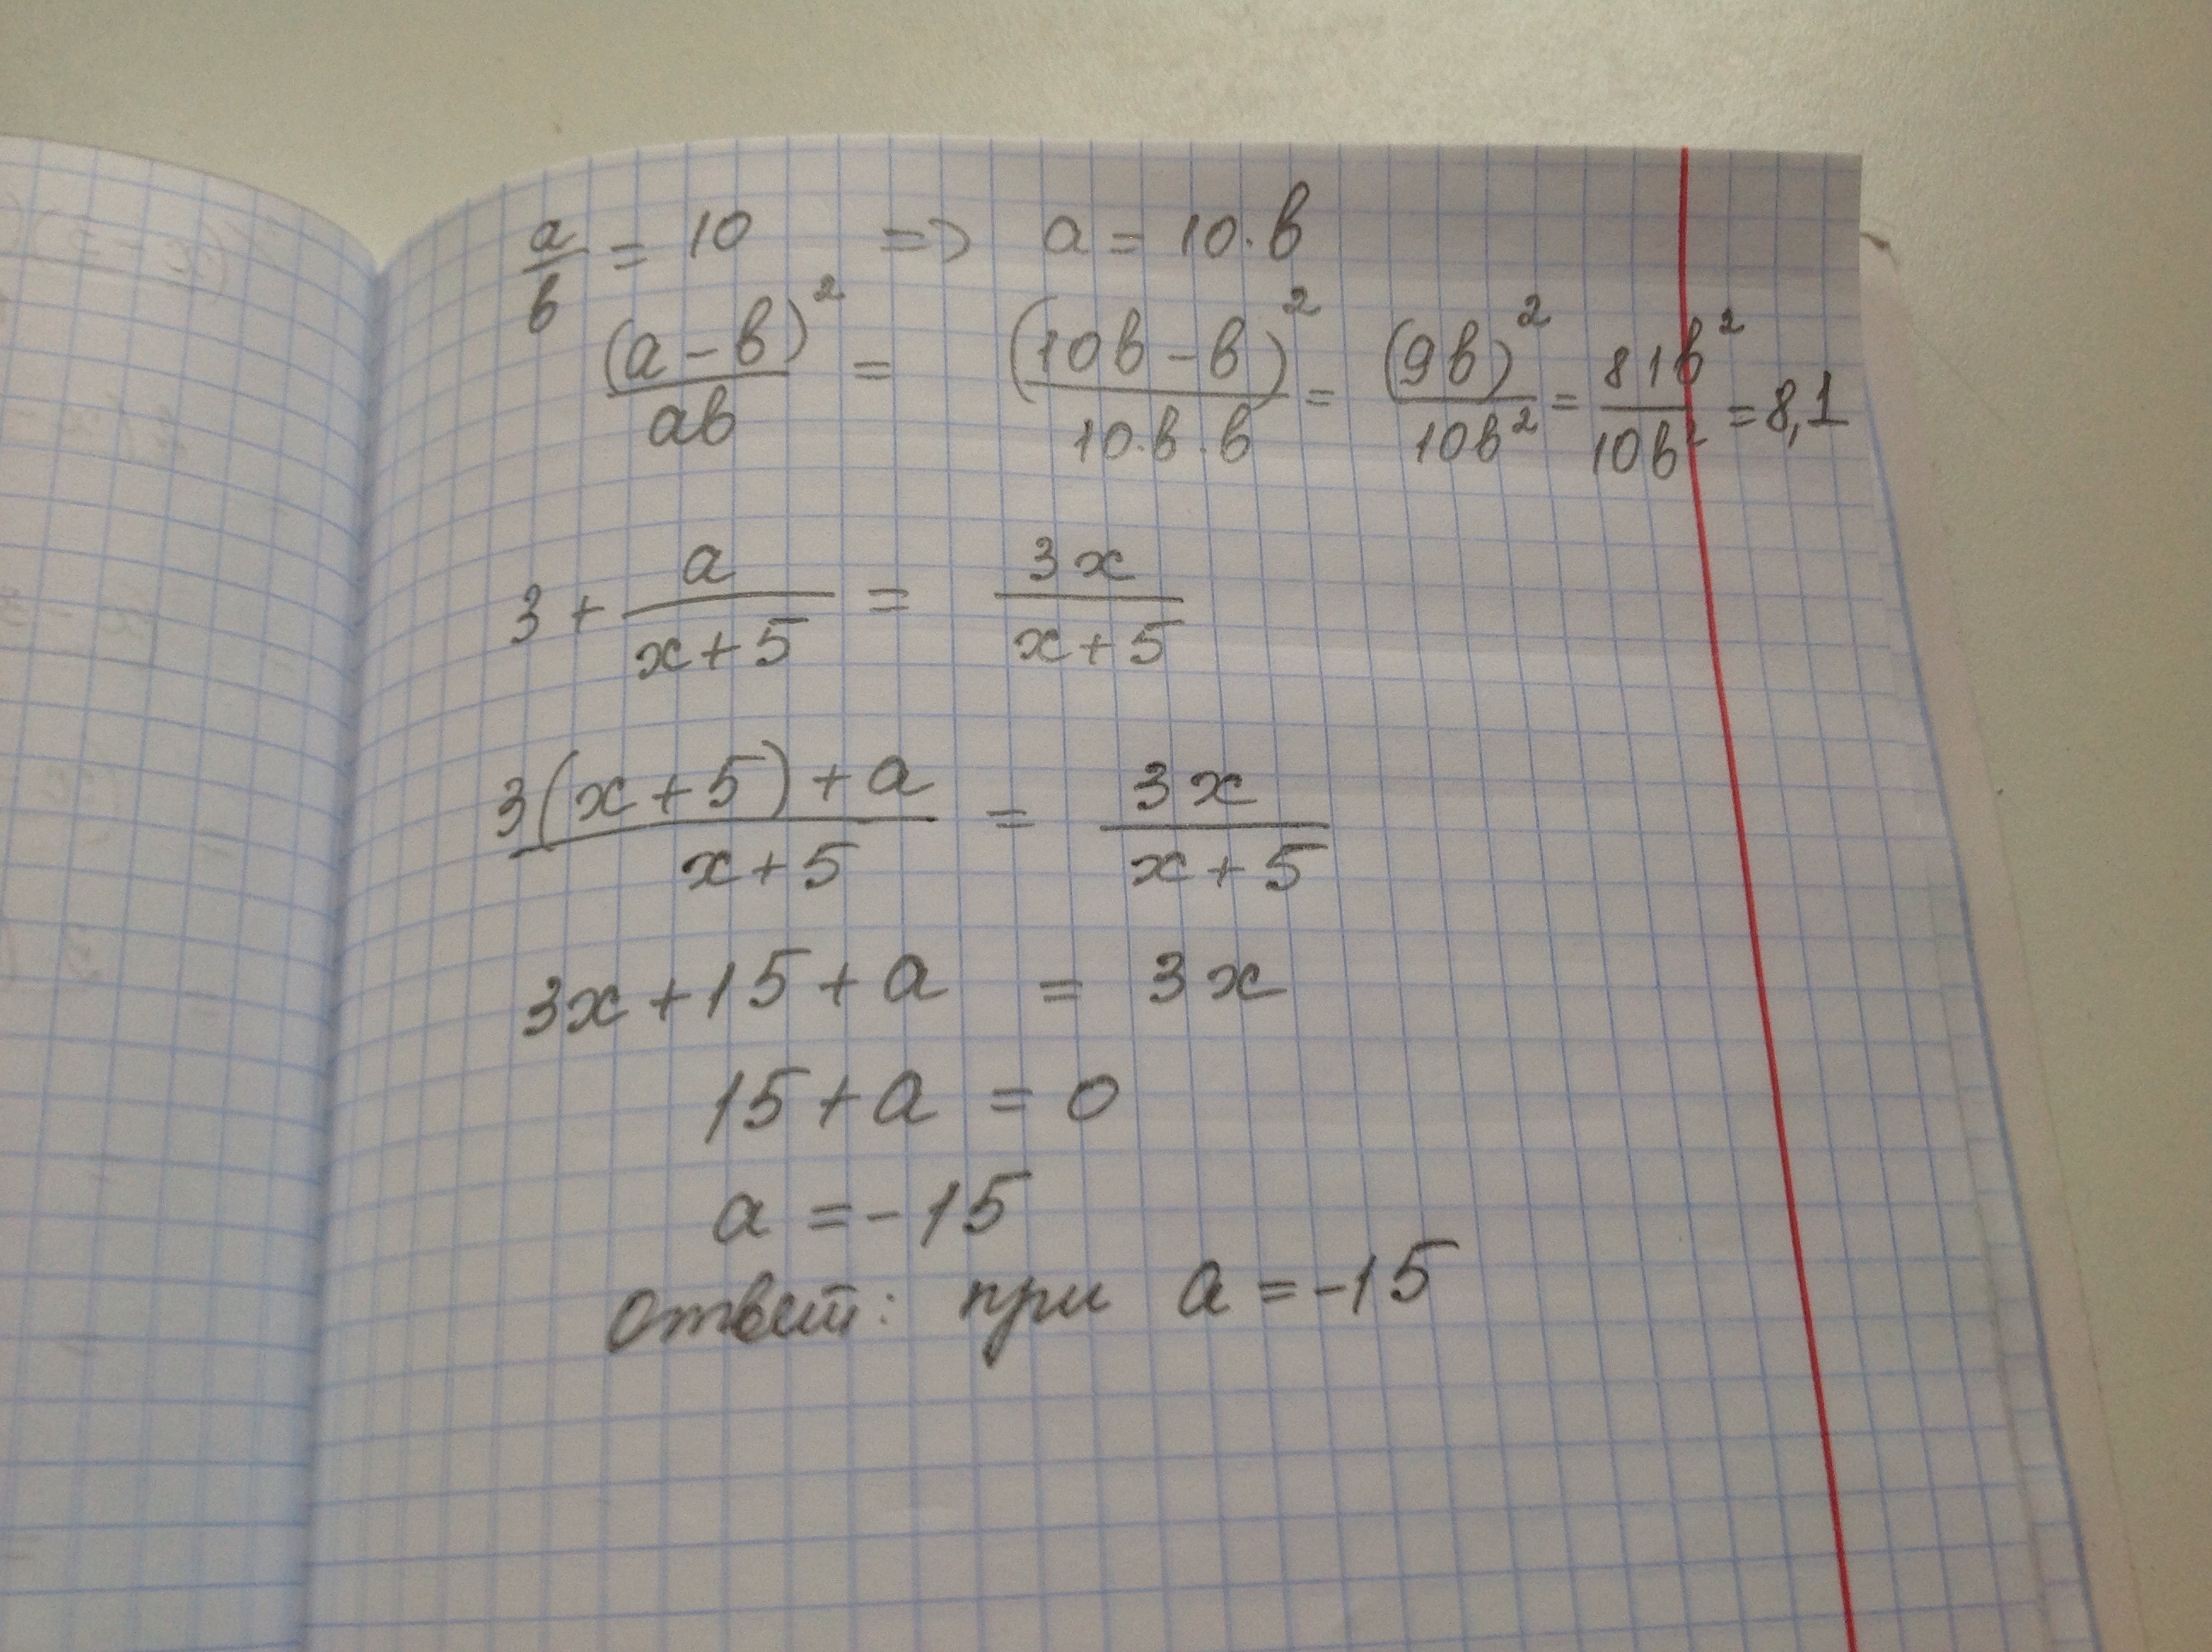 a/b = 10 => a = 10·b
(a-b)²/ab = (10b-b)²/10·b·b = (9b)²/10b² = 81b²/10b² = 8,1
3 + a/x+5 = 3x/x+5
3(x+5)+a/x+5 = 3x/x+5
3x+15+a = 3x
15+a = 0
a = -15
Ответ: при a = -15